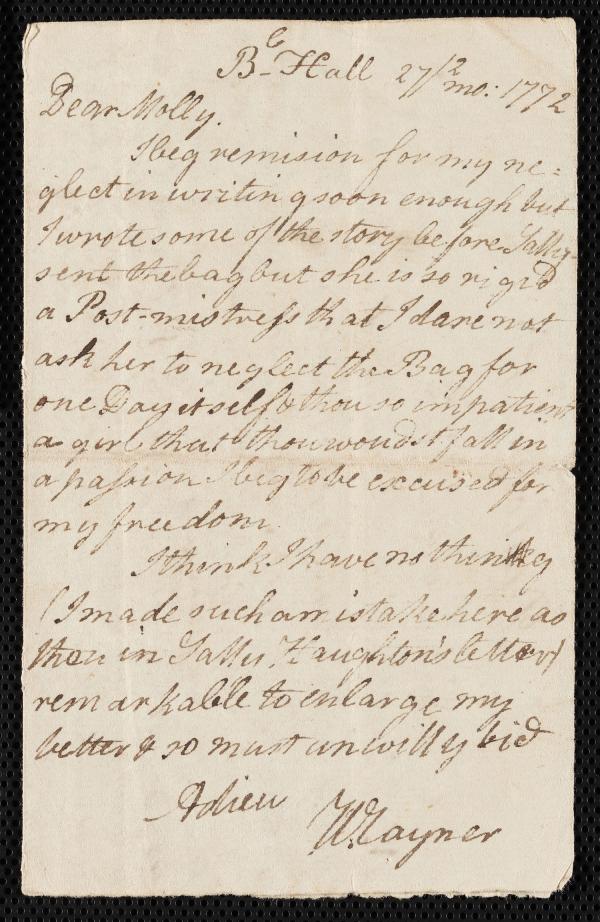 Be Hall 27/12 mo: 1772
Dear Molly.
I beg remision for my ne=
glect in writing soon enough but
I wrote some of the story before Sally
sent the bag but she is so rigid
a Post-mistress that I dare not
ask her to neglect the Bag for
one Day itself & thou so impatient
a girl that thou woudst fall in
a passion I beg to be excused for
my freedom
I think I have nothing
(I made such a mistake here as
thou in Sally Haughton's letter)
remarkable to enlarge my
letter & so must unwilly bid
Adieu
W Rayner